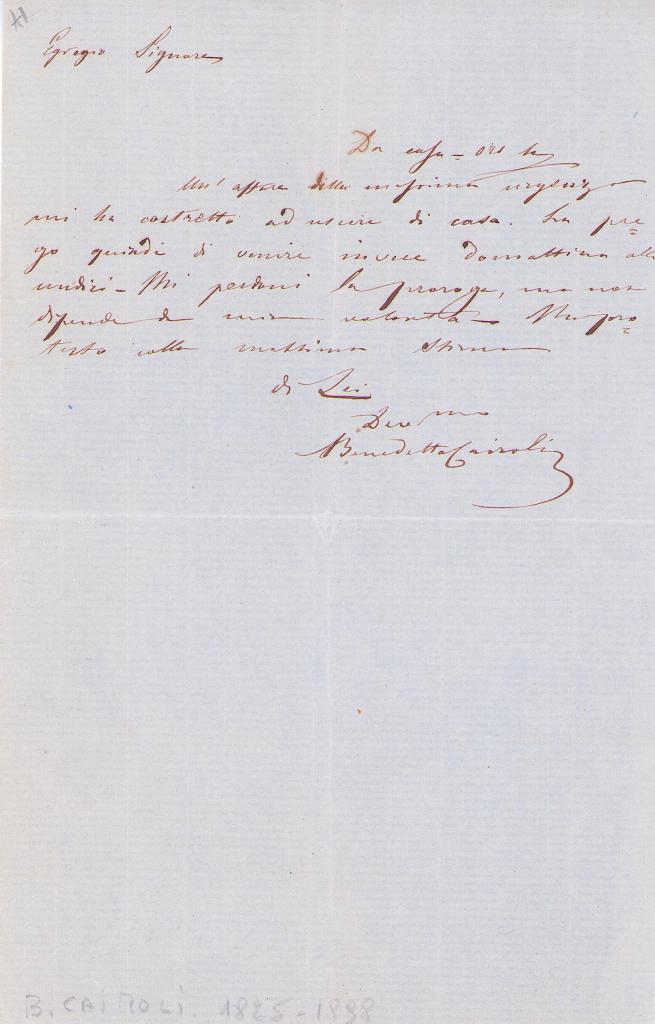 Egregio Signore
Da casa = ore
Un' affare della massima urgenza
mi ha costretto ad uscire di casa. La pre=
go quindi di venire invece domattina alle
undici – Mi perdoni la proroga, ma non
dipende da mia volontà – Mi pro=
testo colla massima stima
di Lei
Dev mo
Benedetto Cairoli
B. CAIROLI. 1825-1898